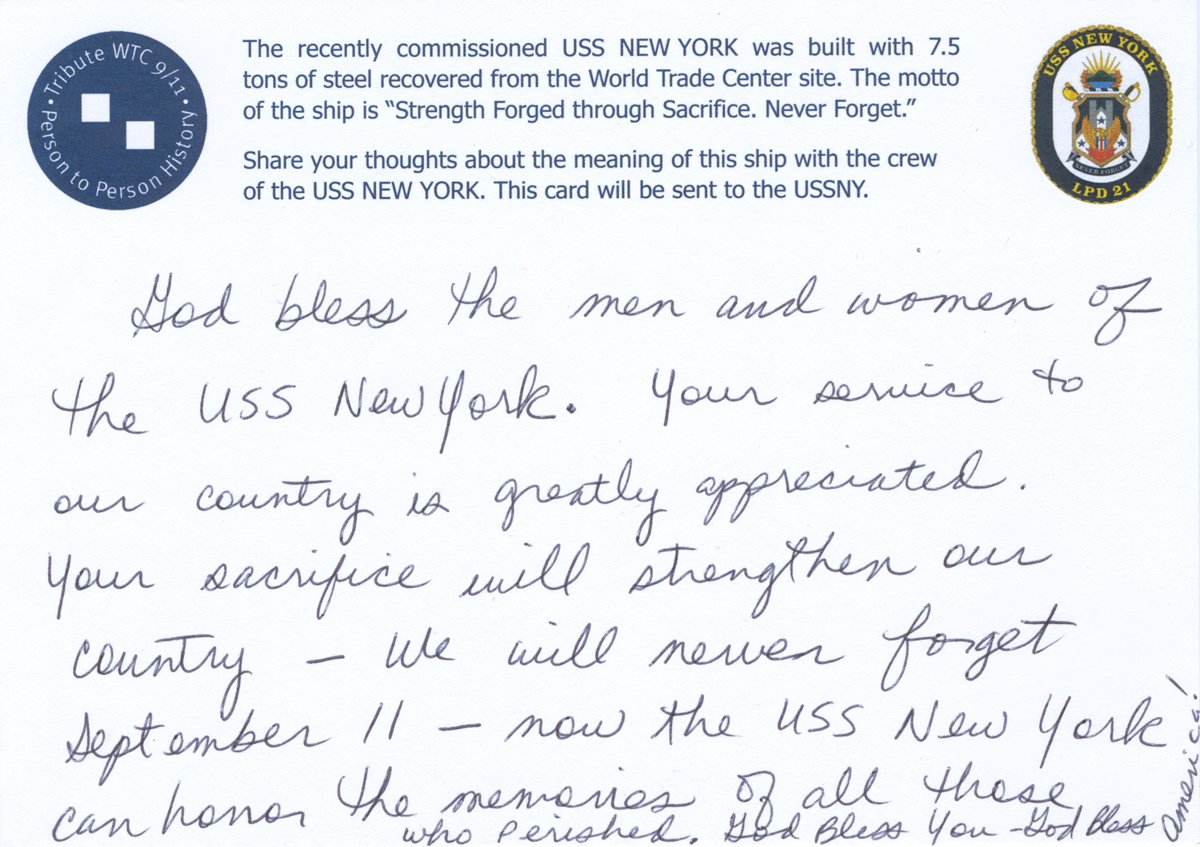 Tribute WTC 9/11 • Person to Person History •
The recently commissioned USS NEW YORK was built with 7.5
tons of steel recovered from the World Trade Center site. The motto
of the ship is “Strength Forged through Sacrifice. Never Forget.”
Share your thoughts about the meaning of this ship with the crew
of the USS NEW YORK. This card will be sent to the USSNY.
USS NEW YORK
NEVER FORGET
LPD 21
God bless the men and women of
the USS New York. Your service to
our country is greatly appreciated.
Your sacrifice will strengthen our
country – We will never forget
September 11 – now the USS New York
can honor the memories of all those
who perished. God Bless You – God Bless
America!